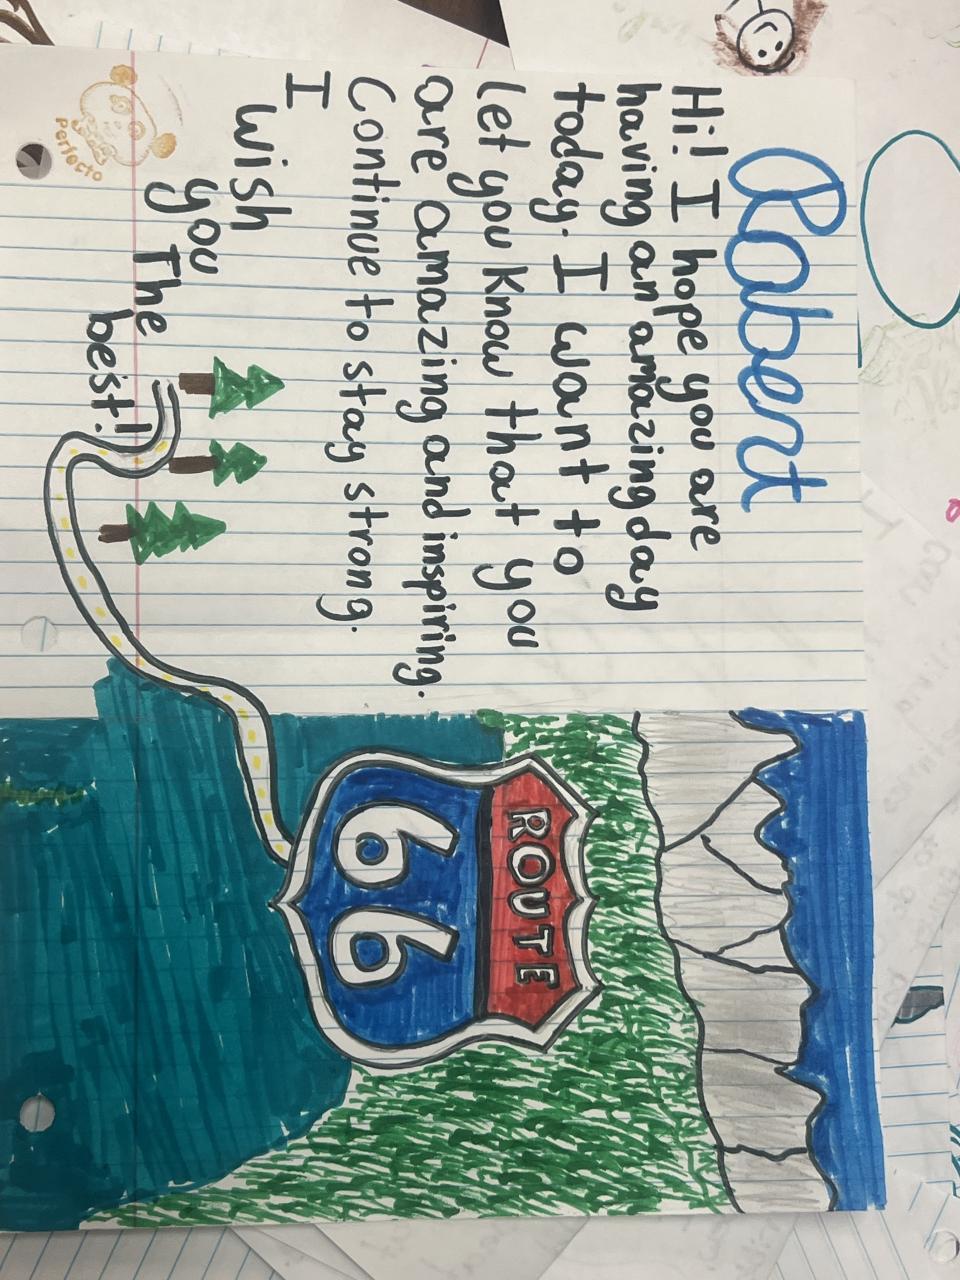 Robert
Hi! I hope you are
having an amazing day
today. I want to
let you know that you
are amazing and inspiring.
Continue to stay strong.
I
wish
you The
best!!
Perfecto
ROUTE
66